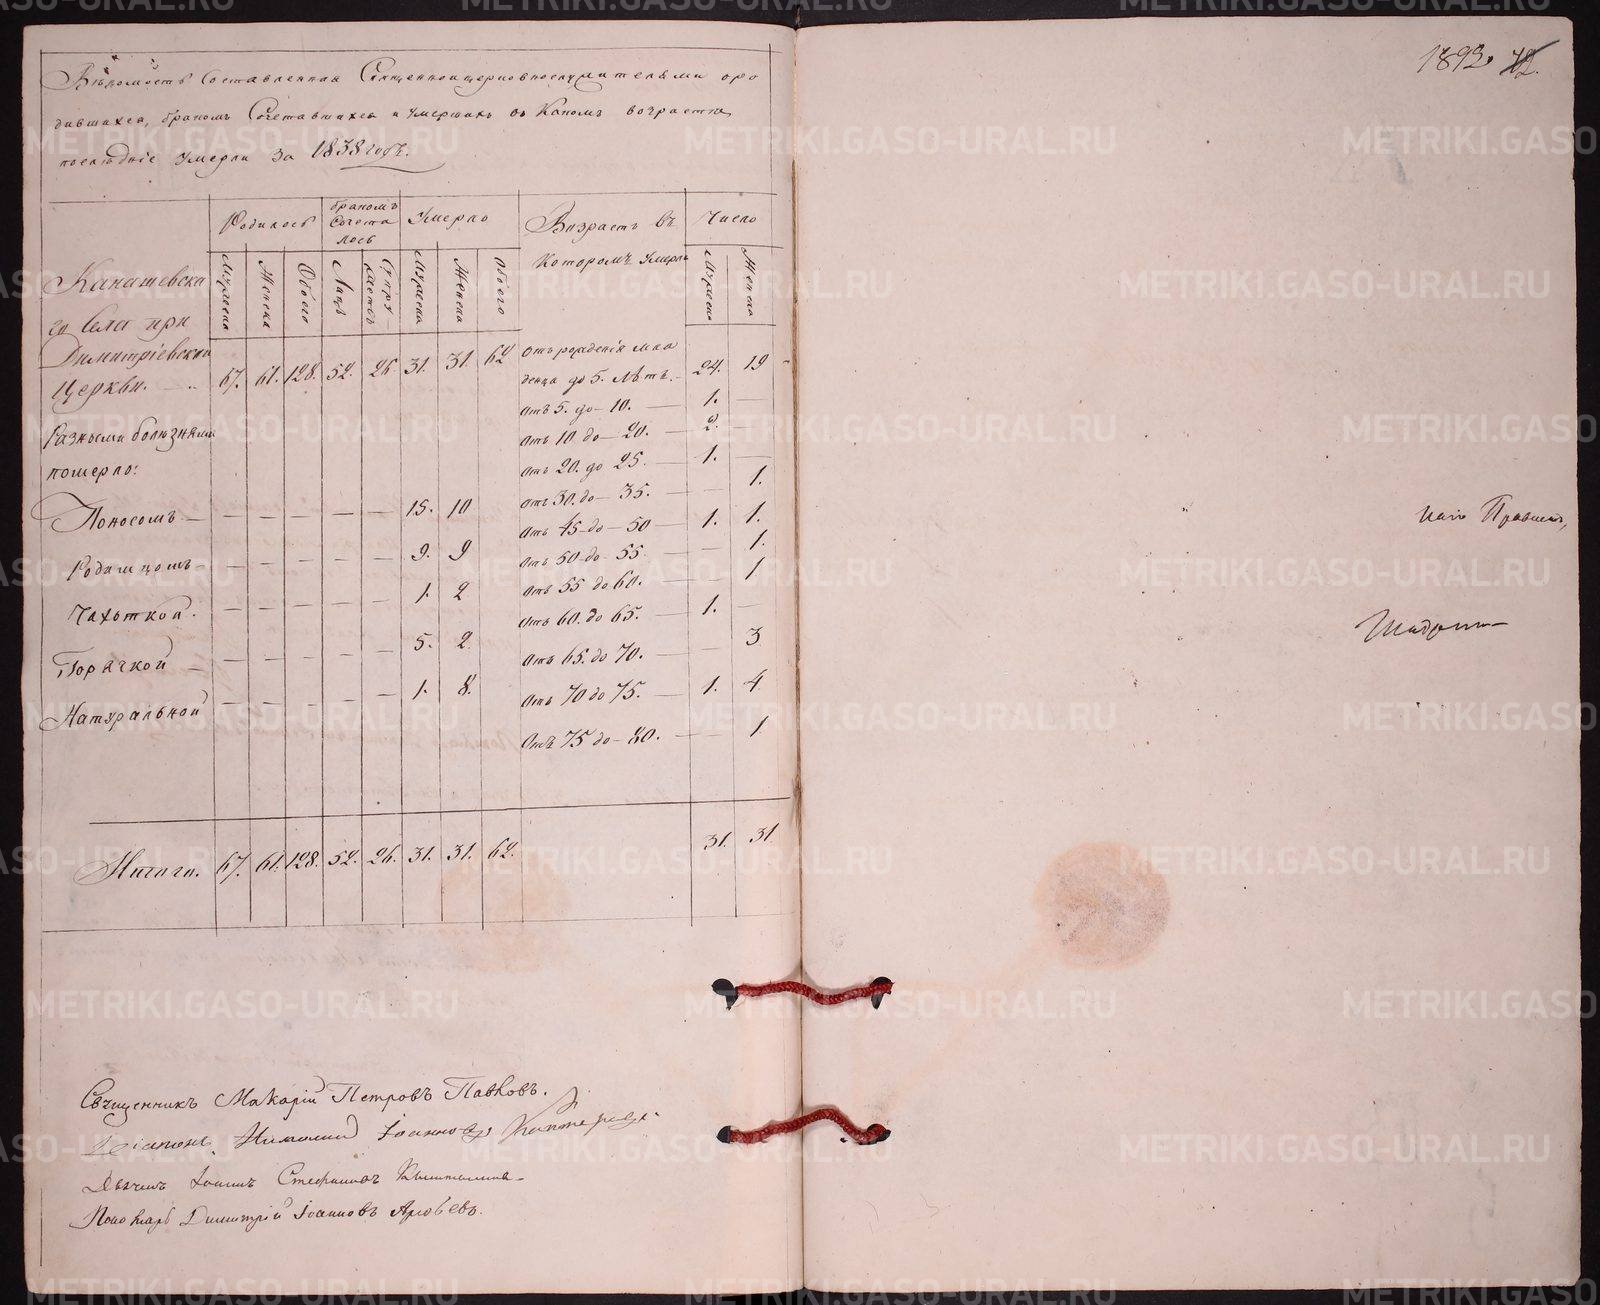 Вѣдомость Составленная Священноцерковнослужителями оро
дившихся, бракомъ Сочетавшихся и Умершихъ въ Какомъ возрасте
последніе умерли за 1838 годъ.
Родилось бракомъ Сочета лось Умерло Возрастъ въ Которомъ Умерли Число
Мужеска Женска Обоего Лицъ Супру- жествъ Мужеска Женска Обоего Мужеска Женска
Канашевска
го Села при
Димитріевской
Церкви. 67. 61. 128. 52. 26 31. 31. 62 Отъ рожденія мла
денца до 5. Лѣтъ. 24. 19
отъ 5. до 10. 1. —
Разными болѣзнями отъ 10 до 20. 2. —
померло: отъ 20. до 25. 1. —
отъ 30. до 35. — 1.
Поносомъ — — — — — — 15. 10 отъ 45 до 50 1. 1.
отъ 50 до 55. — 1.
Родимцомъ — — — — — — 9. 9 отъ 55 до 60. — 1
Чахоткой. — — — — — 1. 2 отъ 60. до 65. 1. —
Горячкой — — — — — — 5. 2. отъ 65. до 70. — 3
Натуральной — — — — — 1. 8. отъ 70 до 75. 1. 4
отъ 75 до 80. — — 1
Итого. 67. 61. 128. 52. 26. 31. 31. 62. 31. 31
Священникъ Макарій Петровъ Павловъ.
Діаконъ Николай Іоанновъ
Дьячекъ Іоаннъ Стефановъ
Пономарь Димитрій Іоанновъ Арефьевъ.
1893. 72.
METRIKI.GASO-URAL.RU